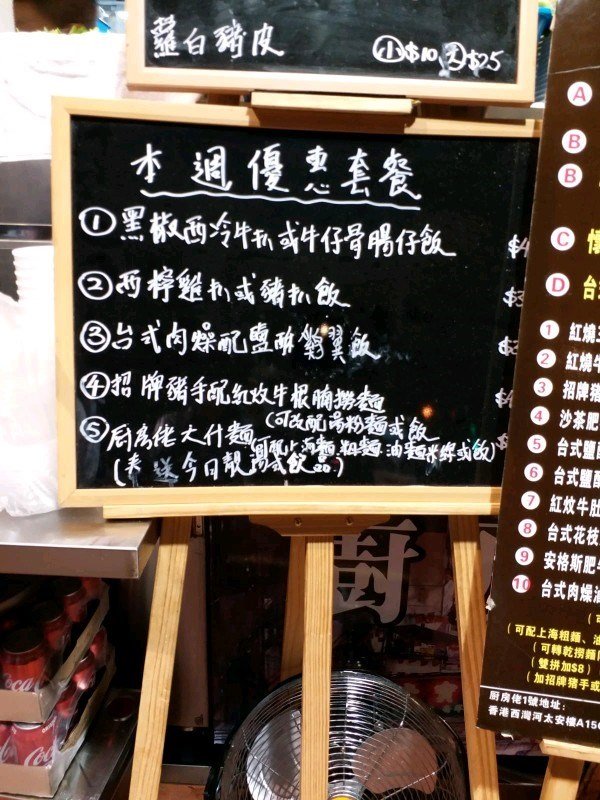 蘿白豬皮 小$10 大$25
本週優惠套餐
①黑椒西冷牛扒或牛仔骨腸仔飯
②西檸雞扒或豬扒飯
③台式肉燥配鹽酥雞翼飯
④招牌豬手配紅炆牛根腩撈麵
(可改配烏粉麵或飯
⑤厨房佬大什麵(可配上海麵.粗麵.油麵米線或飯)
(奉送今日靚湯或飲品)
A
B
B
C
D 台
1 紅燒
2 紅燒牛
3 招牌豬
4 沙茶肥
5 台式鹽
6 台式鹽
7 紅炆牛肚
8 台式花枝
9 安格斯肥
10 台式肉燥
(可配上海粗麵、油
(可轉乾撈麵
(雙拼加$8)
(加招牌豬手或
厨房佬1號地址:
香港西灣河太安樓A15
廚
Coca